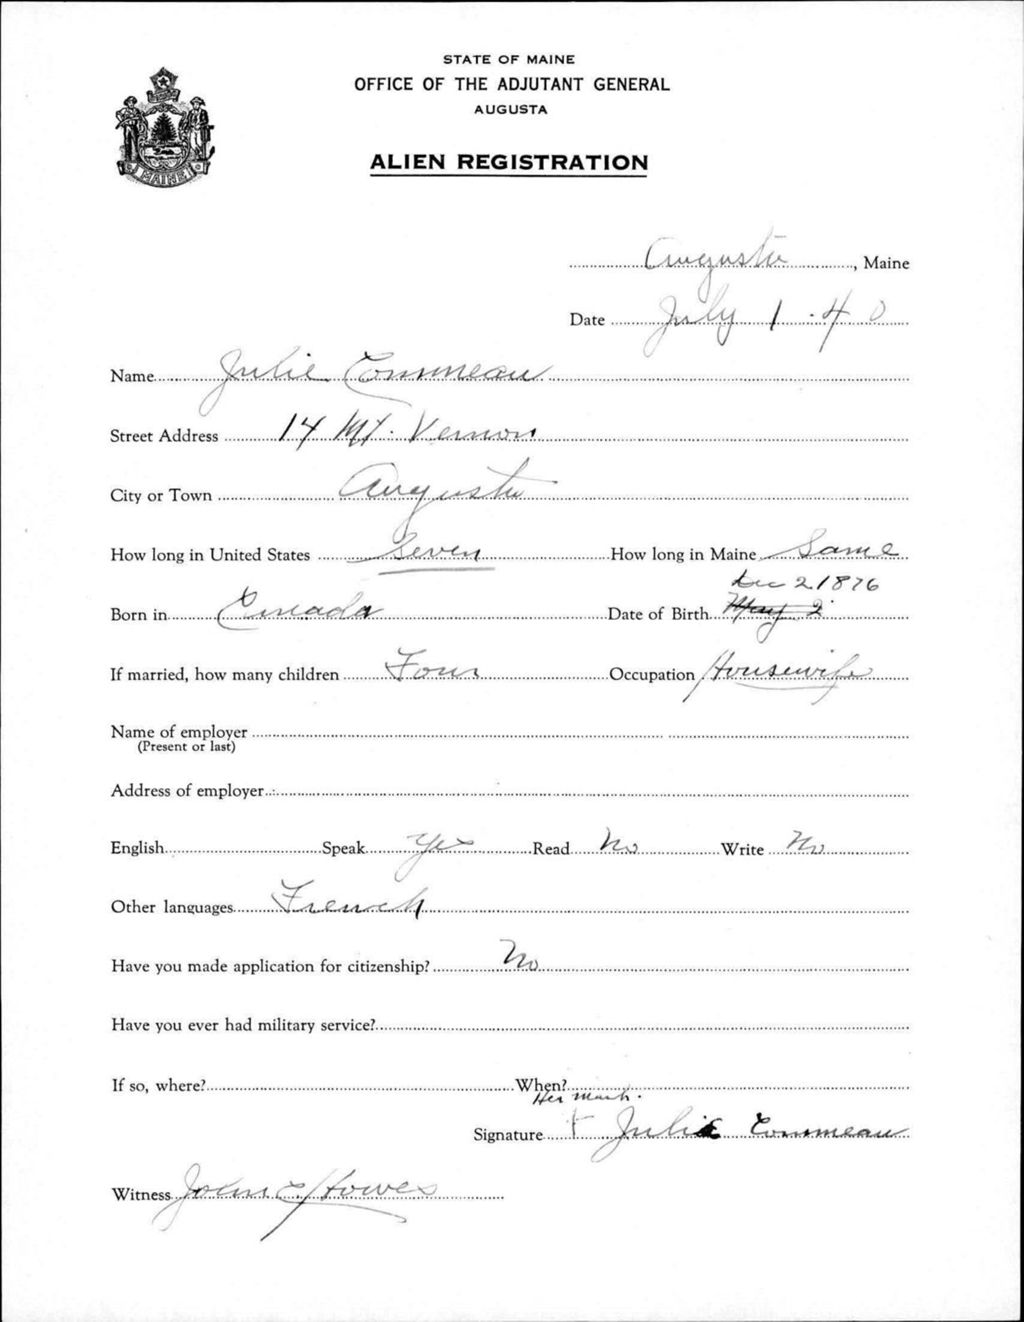 STATE OF MAINE
OFFICE OF THE ADJUTANT GENERAL
AUGUSTA
ALIEN REGISTRATION
MAINE
Augusta, Maine
Date July 1 - 40
Name Julie Commeau
Street Address 14 Mt. Vernon
City or Town Augusta
How long in United States Seven How long in Maine Same
Dec 2 1876
Born in Canada Date of Birth May 2
If married, how many children Four Occupation Housewife
Name of employer
(Present or last)
Address of employer
English Speak Yes Read No Write No
Other languages French
Have you made application for citizenship? No
Have you ever had military service?
If so, where? When?
Her mark.
Signature + Julie Commeau
Witness John E Howes